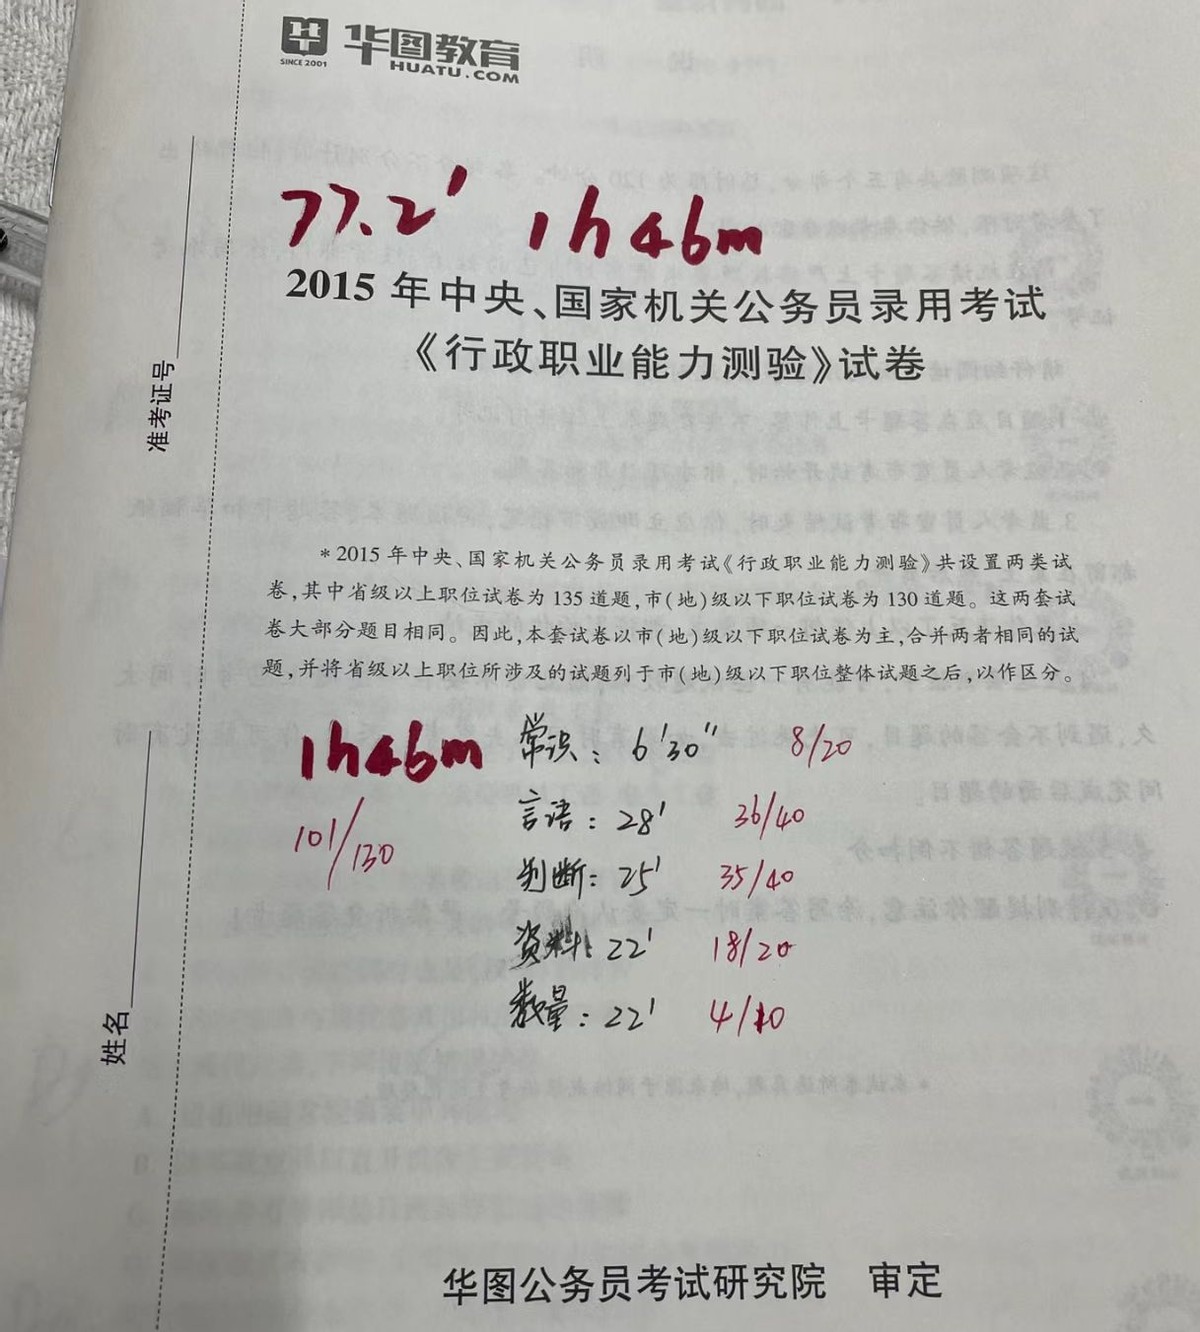 华图教育
SINCE 2001
HUATU.COM
77.2' 1h46m
2015年中央、国家机关公务员录用考试
《行政职业能力测验》试卷
准考证号
*2015年中央、国家机关公务员录用考试《行政职业能力测验》共设置两类试
卷,其中省级以上职位试卷为135道题,市(地)级以下职位试卷为130道题。这两套试
卷大部分题目相同。因此,本套试卷以市(地)级以下职位试卷为主,合并两者相同的试
题,并将省级以上职位所涉及的试题列于市(地)级以下职位整体试题之后,以作区分。
1h46m
101/130
常识:6'30" 8/20
言语:28' 36/40
判断:25' 35/40
资料:22' 18/20
数量:22' 4/10
姓名
华图公务员考试研究院 审定